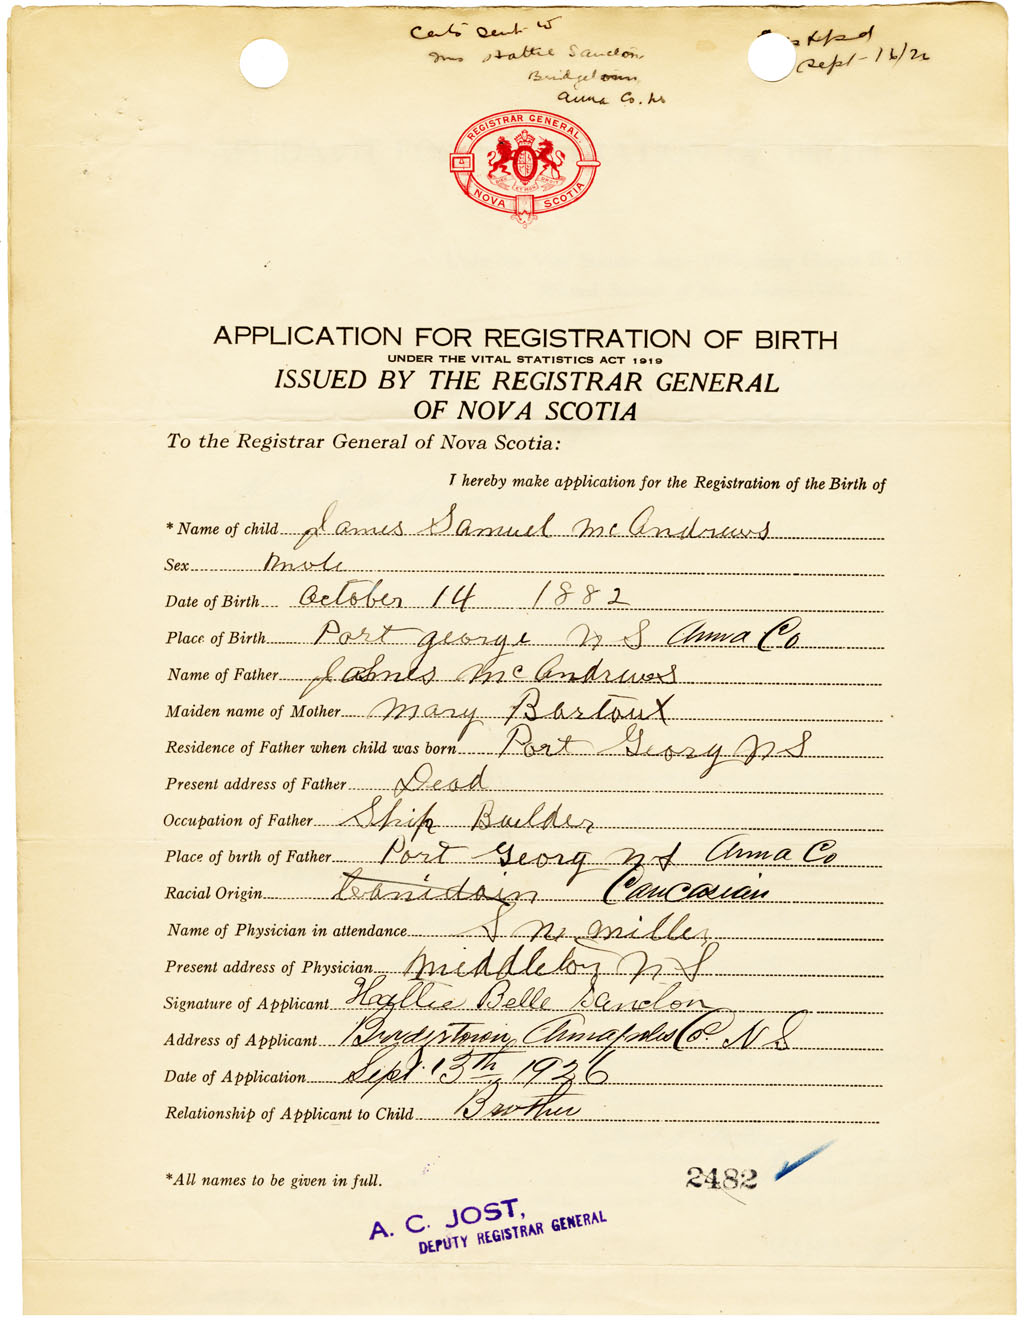 Certs sent to
Mrs Hattie Sanclon
Bridgetown
Anna Co. NS
Sept - 16/26
REGISTRAR GENERAL
NOVA SCOTIA
APPLICATION FOR REGISTRATION OF BIRTH
UNDER THE VITAL STATISTICS ACT 1919
ISSUED BY THE REGISTRAR GENERAL
OF NOVA SCOTIA
To the Registrar General of Nova Scotia:
I hereby make application for the Registration of the Birth of
* Name of child James Samuel McAndrews
Sex Male
Date of Birth October 14 1882
Place of Birth Port george N S Anna Co
Name of Father James McAndrews
Maiden name of Mother Mary Bartoux
Residence of Father when child was born Port Georg N S
Present address of Father Dead
Occupation of Father Ship Builder
Place of birth of Father Port Georg N S Anna Co
Racial Origin Canidain Caucasian
Name of Physician in attendance S N Miller
Present address of Physician Middleton N S
Signature of Applicant Hattie Belle Sanclon
Address of Applicant Bridgetown, Annapolis Co. N S
Date of Application Sept. 13th, 1926
Relationship of Applicant to Child Brother
*All names to be given in full.
2482
A. C. JOST,
DEPUTY REGISTRAR GENERAL